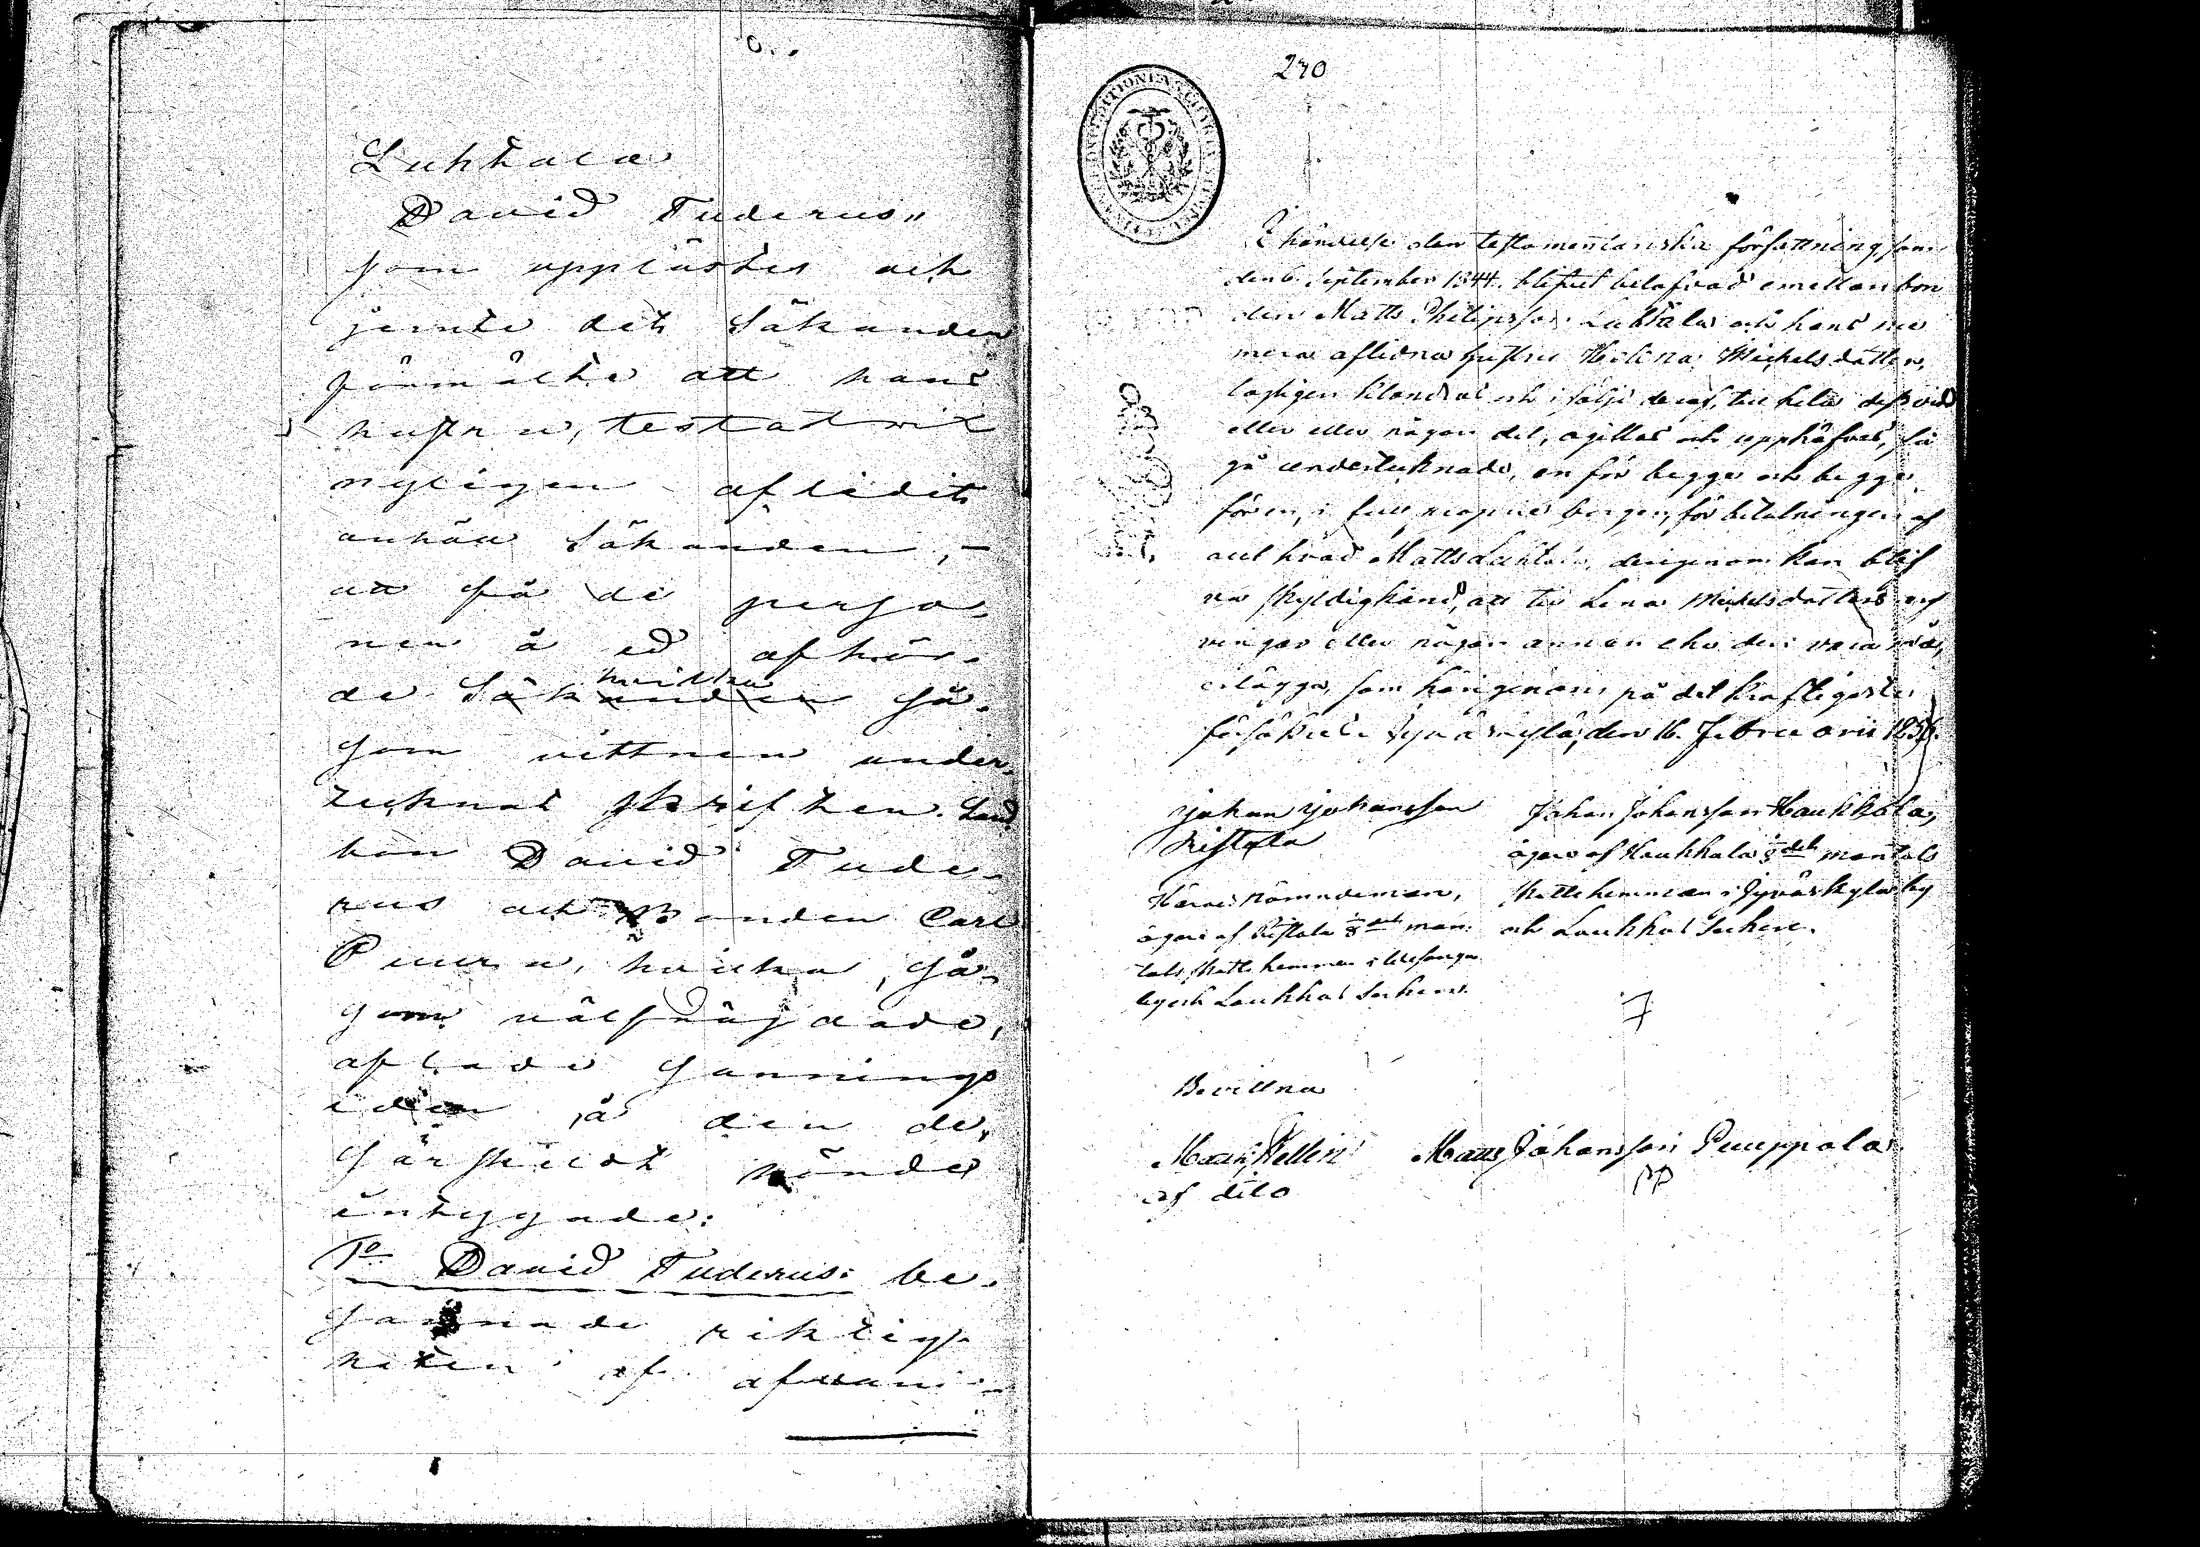 Luhtala
David Tuderus"
som upplästes och
jemte det Sökanden
förmälte att hans
hustru, testatrix
nyligen aflidit
anhöll Sökanden,
att få de perso-
ner å ed afhör-
de Sökanden hvilka så-
som vittnen under-
tecknat skriften. Land
bon David Tude-
rus och Bonden Carl
Puura, hvilka, så-
som välfräjdade,
aflade sannings
eden å den de,
särskildt hände
intygade:
1o David Tuderus: be-
sannade riktig-
heten af afvani-
270
I händelse den testamentariska författning, som
den 6 September 1844 blifvit belefvad emellan bon
den Matts Philipsson Luhtala och hans nu
mera aflidna hustru Helena Michelsdotter,
lagligen klandras och i följe deraf, till hela dess vid
eller eller någon del, ogillas och upphäfves, så
gå undertecknade, en för begge och begge
för en, i full borgen, för betalningen af
allt hvad Matts Luhtala derigenom kan blif
va skyldigkänd, att till Lena Michelsdotters arf
vingar eller någon annan eho den vara må,
erlägga, som härigenom på det kraftigaste
försäkras den 16 Februarii 1856.
Johan Johansson
Ristola
Härads nämndeman,
ägare af Ristola 1/8 dels man-
tals skatte hemman i
by och Laukkas Socken.
Johan Johansson Haukkala,
ägare af Haukkala 1/8 dels mantals
skatte hemman i Jyväskylä by
och Laukkas Socken.
Bevittna
af dito
Matts Johansson Puuppola
PP